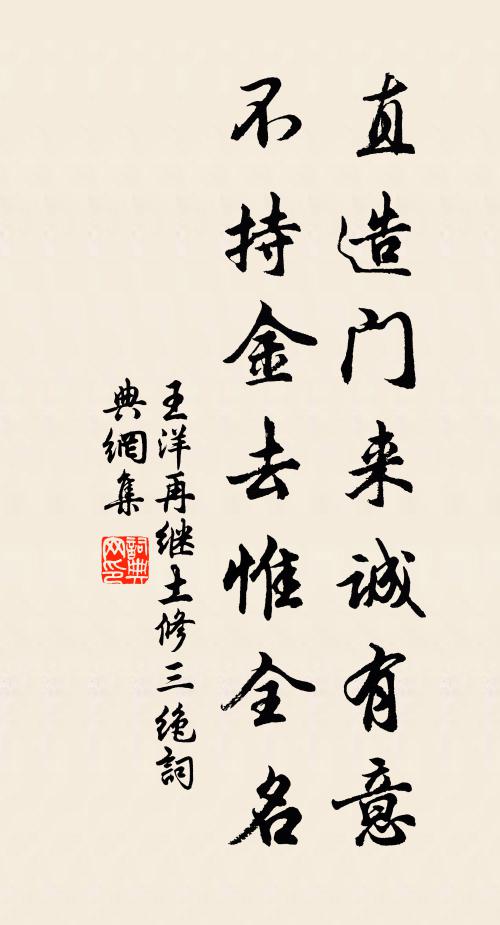 直造门来诚有意
不持金去惟全名
王洋再继土修三绝詞
典網集
詞典网印